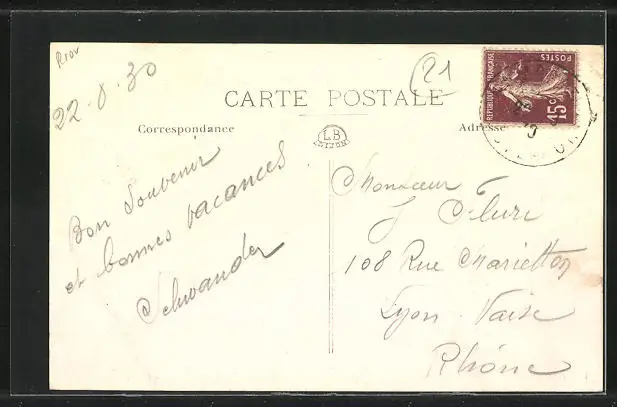 22-8-30
(21
CARTE POSTALE
Correspondance
Adresse
L B
DIJON
POSTES
REPUBLIQUE FRANÇAISE
15c
Bon Souvenir
et bonnes vacances
Schwander
Monsieur
J Fluri
108 Rue Marietton
Lyon-Vaise
Rhône